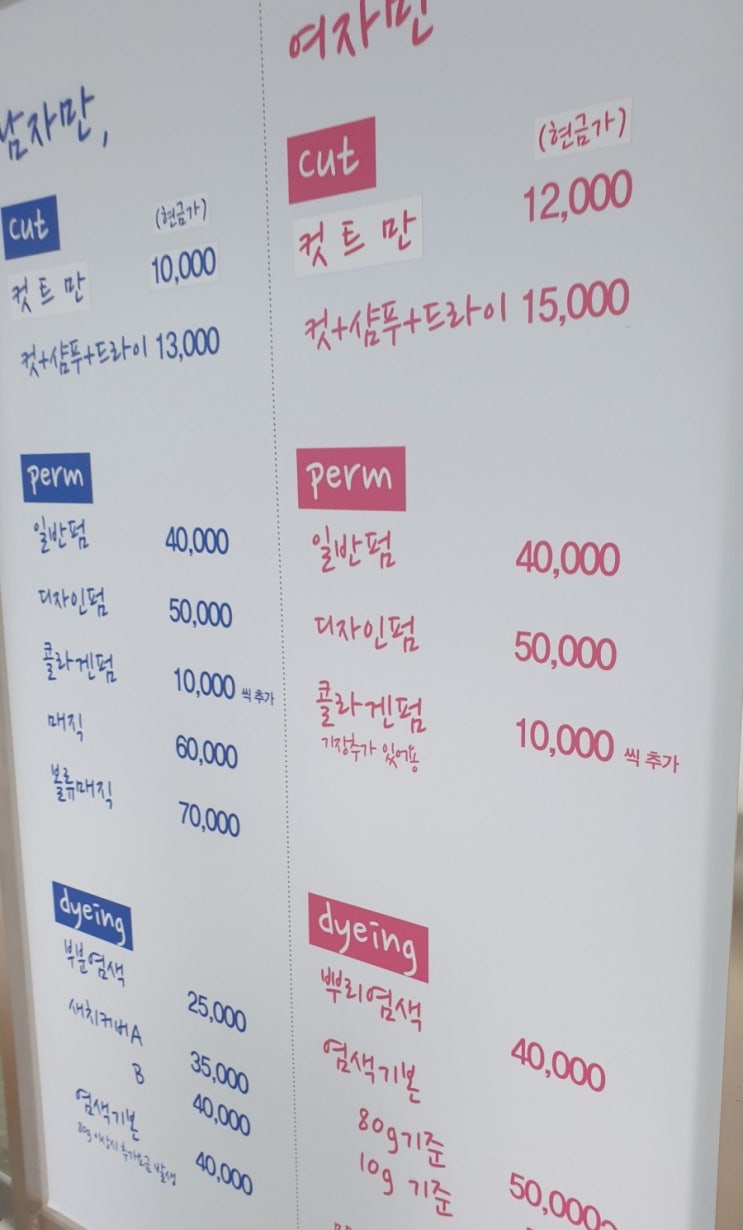 남자만,
cut
(현금가)
컷 트 만 10,000
컷+샴푸+드라이 13,000
perm
일반펌 40,000
디자인펌 50,000
콜라겐펌 10,000 씩 추가
매직 60,000
볼륨매직 70,000
dyeing
부분염색 25,000
새치커버A 35,000
B 40,000
염색기본 40,000
80g 이상시 추가요금 발생
여자만
cut
(현금가)
컷 트 만 12,000
컷+샴푸+드라이 15,000
perm
일반펌 40,000
디자인펌 50,000
콜라겐펌 10,000 씩 추가
기장추가 있어용
dyeing
뿌리염색 40,000
염색기본
80g기준 50,000
10g 기준